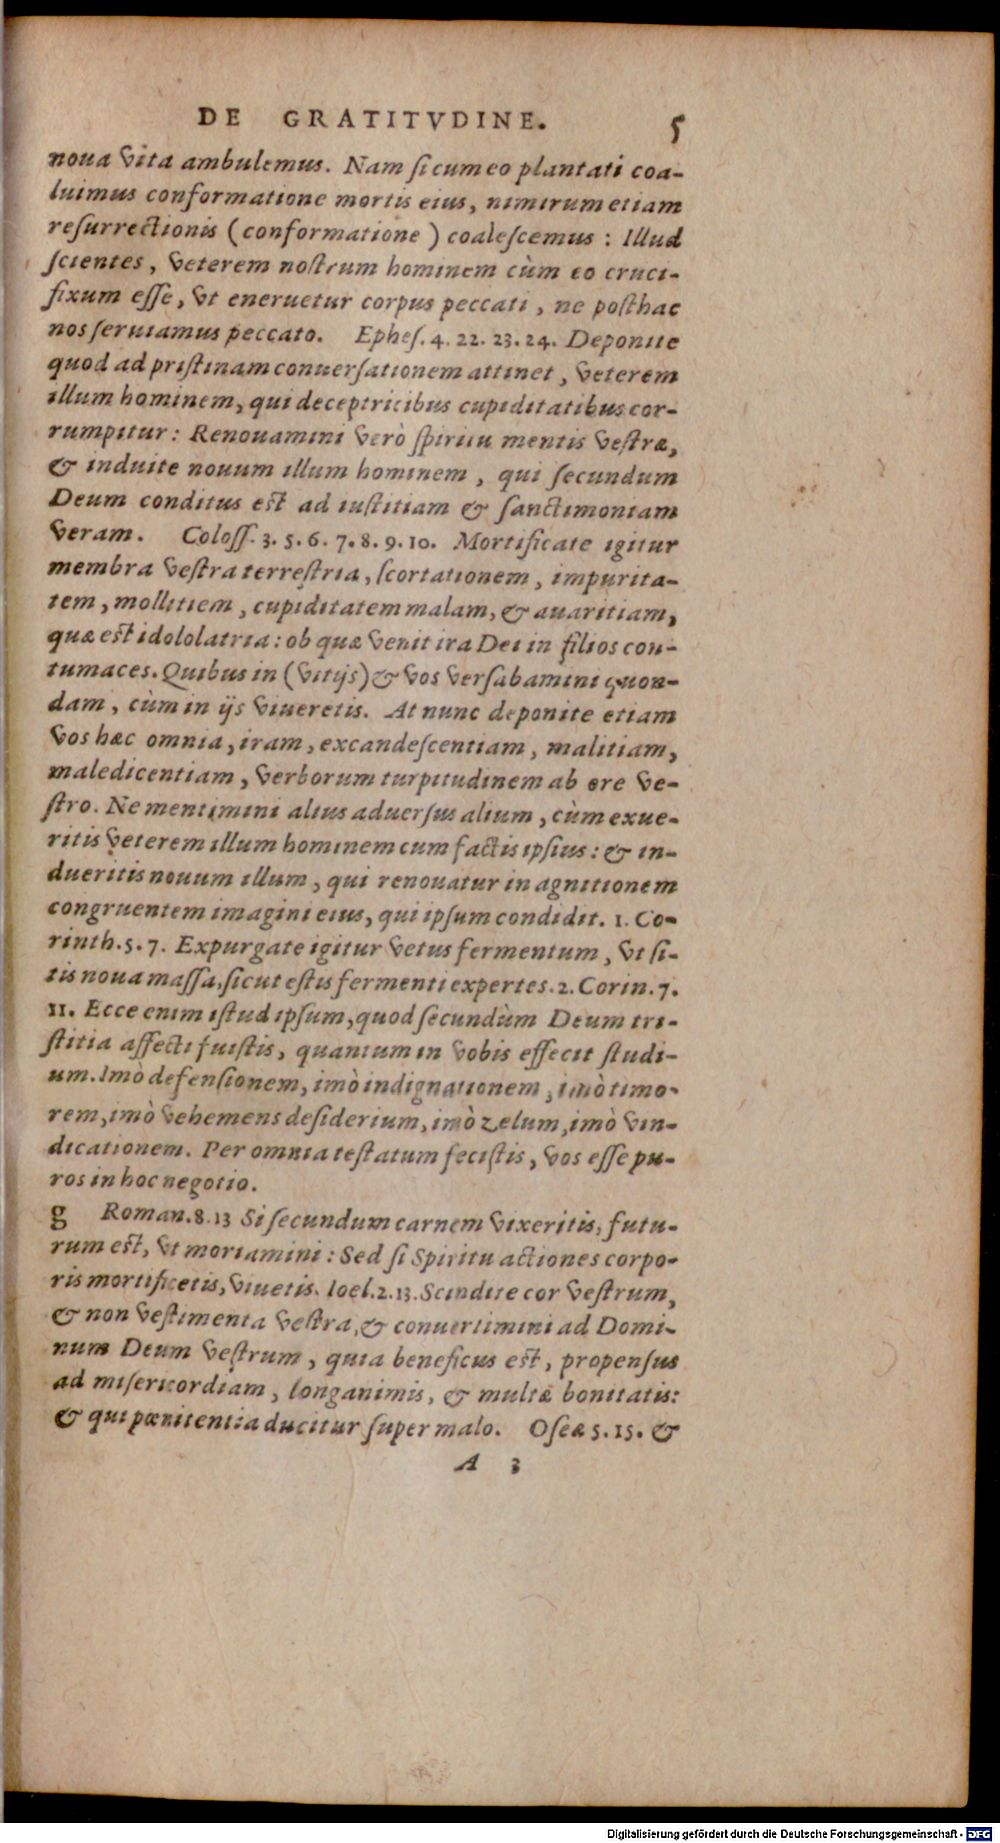 DE GRATITVDINE. 5
noua vita ambulemus. Nam si cum eo plantati coa-
luimus conformatione mortis eius, nimirum etiam
resurrectionis (conformatione) coalescemus: Illud
scientes, veterem nostrum hominem cùm eo cruci-
fixum esse, vt eneruetur corpus peccati, ne posthac
nos seruiamus peccato. Ephes. 4. 22. 23. 24. Deponite
quod ad pristinam conuersationem attinet, veterem
illum hominem, qui deceptricibus cupiditatibus cor-
rumpitur: Renouamini verò spiritu mentis vestræ,
& induite nouum illum hominem, qui secundum
Deum conditus est ad iustitiam & sanctimoniam
veram. Coloss. 3. 5. 6. 7. 8. 9. 10. Mortificate igitur
membra vestra terrestria, scortationem, impurita-
tem, mollitiem, cupiditatem malam, & auaritiam,
quæ est idololatria: ob quæ venit ira Dei in filios con-
tumaces. Quibus in (vitijs) & vos versabamini quon-
dam, cùm in ijs viueretis. At nunc deponite etiam
vos hæc omnia, iram, excandescentiam, malitiam,
maledicentiam, verborum turpitudinem ab ore ve-
stro. Ne mentimini alius aduersus alium, cùm exue-
ritis veterem illum hominem cum factis ipsius: & in-
dueritis nouum illum, qui renouatur in agnitionem
congruentem imagini eius, qui ipsum condidit. 1. Co-
rinth. 5. 7. Expurgate igitur vetus fermentum, vt si-
tis noua massa, sicut estis fermenti expertes. 2. Corin. 7.
11. Ecce enim istud ipsum, quod secundùm Deum tri-
stitia affecti fuistis, quantum in vobis effecit studi-
um. Imò defensionem, imò indignationem, imò timo-
rem, imò vehemens desiderium, imò zelum, imò vin-
dicationem. Per omnia testatum fecistis, vos esse pu-
ros in hoc negotio.
g Roman. 8. 13 Si secundum carnem vixeritis, futu-
rum est, vt moriamini: Sed si Spiritu actiones corpo-
ris mortificetis, viuetis. Ioel. 2. 13. Scindite cor vestrum,
& non vestimenta vestra, & conuertimini ad Domi-
num Deum vestrum, quia beneficus est, propensus
ad misericordiam, longanimis, & multæ bonitatis:
& qui pœnitentia ducitur super malo. Oseæ 5. 15. &
A 3
Digitalisierung gefördert durch die Deutsche Forschungsgemeinschaft - DFG